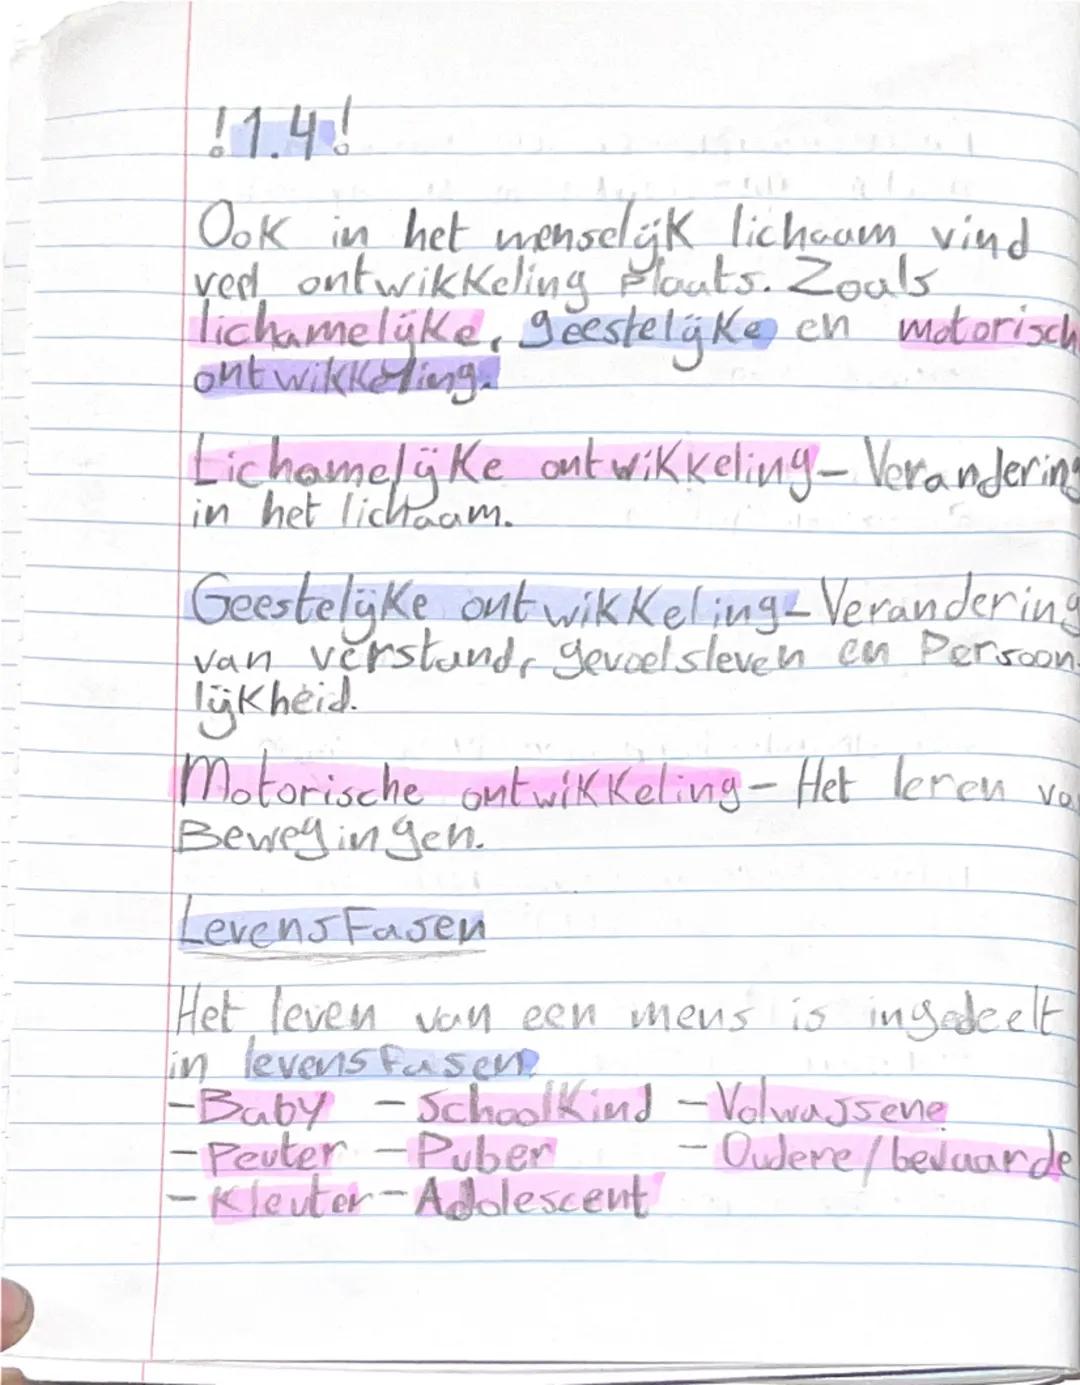 !1.4!
Ook in het menselijk lichaam vind
veel ontwikkeling plaats. Zoals
lichamelijke, geestelijke en motorisch
ontwikkeling.
Lichamelijke ontwikkeling - Verandering
in het lichaam.
Geestelijke ontwikkeling - Verandering
van verstand, gevoelsleven en Persoon-
lijkheid.
Motorische ontwikkeling - Het leren va
Bewegingen.
Levensfasen
Het leven van een mens is ingedeelt
in levensfasen.
- Baby - Schoolkind - Volwassene
- Peuter - Puber - Oudere/bejaarde
- Kleuter - Adolescent